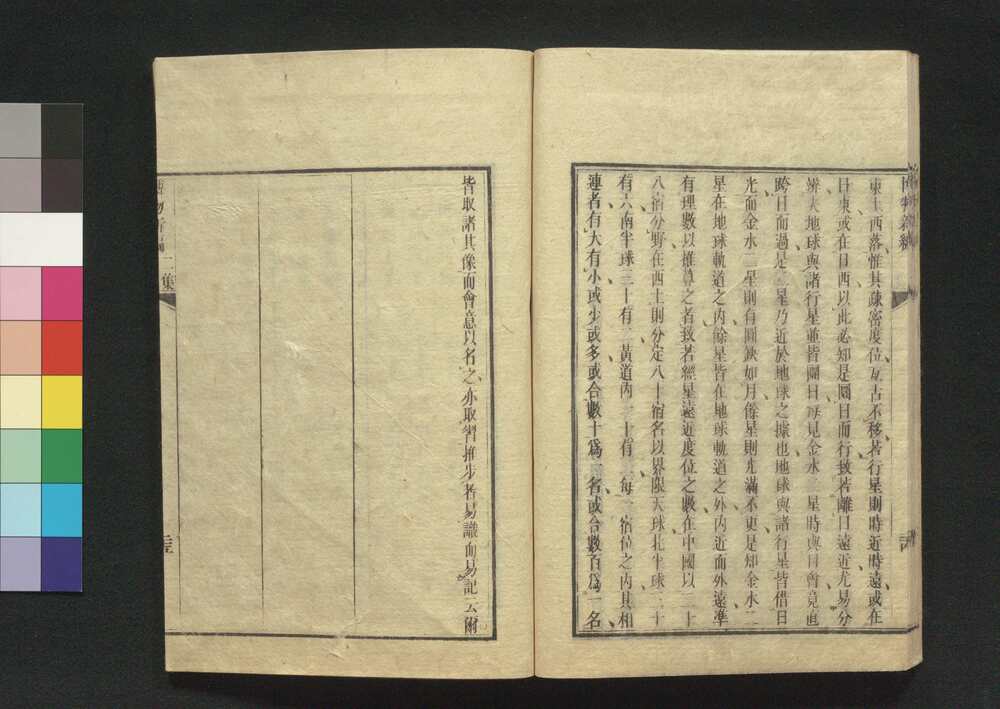 東上西落惟其疎密度位亙古不移若行星則時近時遠或在
日東或在日西以此必知是圜日而行致若離日遠近尤易分
辨大地球與諸行星並皆圜日每見金水二星時與日會竟直
跨日而過是二星乃近於地球之據也地球與諸行星皆借日
光而金水二星則有圓缺如月餘星則光滿不更是知金水二
星在地球軌道之內餘星皆在地球軌道之外內近而外遠準
有理數以推算之者致若經星遠近度位之數在中國以二十
八宿分野在西土則分定八十宿名以界限天球北半球三十
有六南半球三十有二黃道內一十有二每一宿位之內其相
連者有大有小或少或多或合數十為一名或合數百為一名
皆取諸其像而會意以名之亦取習推步者易識而易記云爾
二集